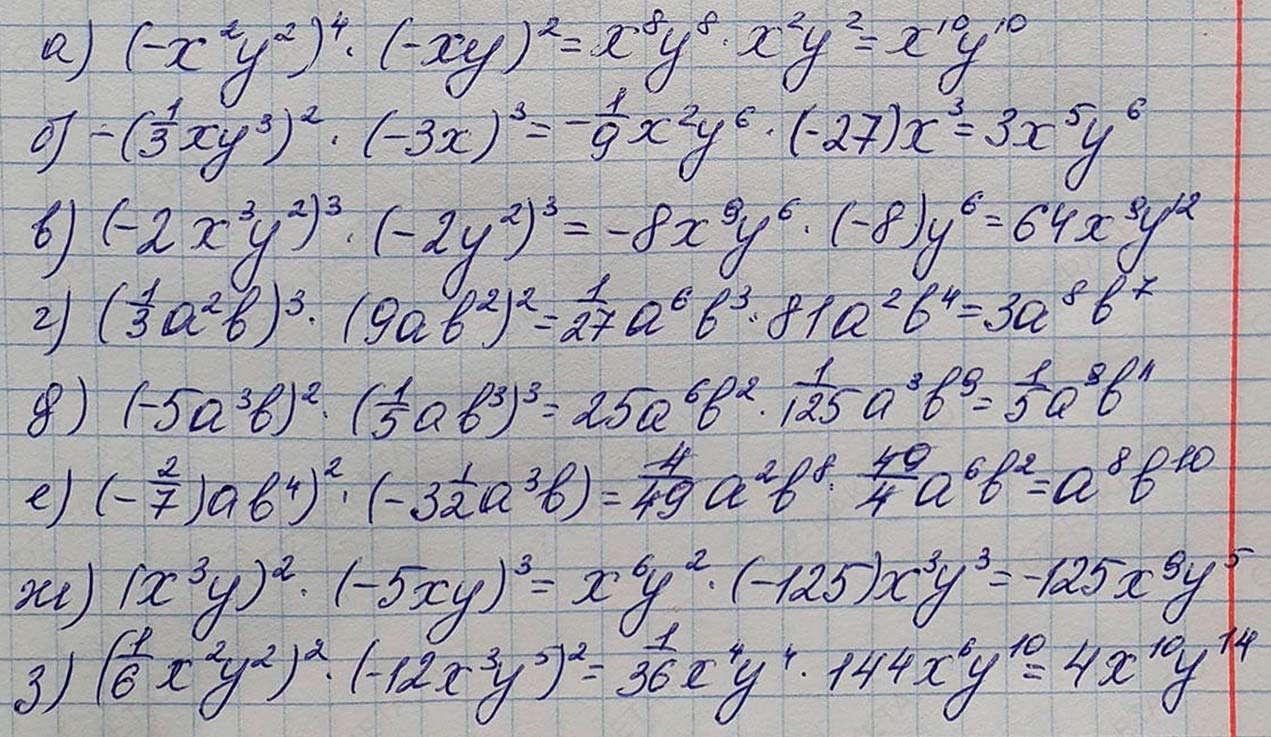 а) (-x²y²)⁴ · (-xy)² = x⁸y⁸ · x²y² = x¹⁰y¹⁰
б) -(1/3xy³)² · (-3x)³ = -1/9x²y⁶ · (-27)x³ = 3x⁵y⁶
в) (-2x³y²)³ · (-2y²)³ = -8x⁹y⁶ · (-8)y⁶ = 64x⁹y¹²
г) (1/3a²b)³ · (9ab²)² = 1/27a⁶b³ · 81a²b⁴ = 3a⁸b⁷
д) (-5a³b)² · (1/5ab³)³ = 25a⁶b² · 1/125a³b⁹ = 1/5a⁹b¹¹
е) (-2/7)ab⁴)² · (-3 1/2a³b) = 4/49a²b⁸ · 49/4a⁶b² = a⁸b¹⁰
ж) (x³y)² · (-5xy)³ = x⁶y² · (-125)x³y³ = -125x⁹y⁵
з) (1/6x²y²)² · (-12x³y⁵)² = 1/36x⁴y⁴ · 144x⁶y¹⁰ = 4x¹⁰y¹⁴